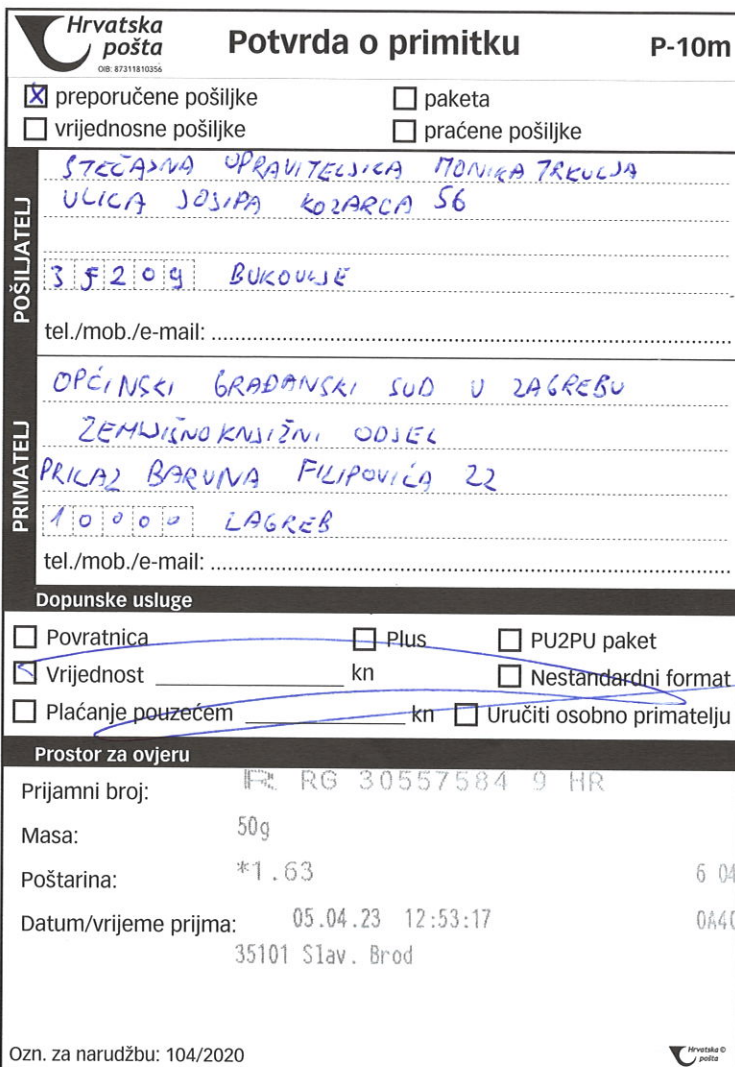 Hrvatska pošta
OIB: 87311810356
Potvrda o primitku P-10m
preporučene pošiljke paketa
vrijednosne pošiljke praćene pošiljke
POŠILJATELJ
STEČAJNA UPRAVITELJICA MONIKA TRKULJA
ULICA JOSIPA KOZARCA 56
35209 BUKOVLJE
tel./mob./e-mail:
PRIMATELJ
OPĆINSKI GRAĐANSKI SUD U ZAGREBU
ZEMLJIŠNOKNJIŽNI ODJEL
PRILAZ BARUNA FILIPOVIĆA 22
10000 ZAGREB
tel./mob./e-mail:
Dopunske usluge
Povratnica Plus PU2PU paket
Vrijednost kn Nestandardni format
Plaćanje pouzećem kn Uručiti osobno primatelju
Prostor za ovjeru
Prijamni broj: R RG 30557584 9 HR
Masa: 50g
Poštarina: *1.63 6 04
Datum/vrijeme prijma: 05.04.23 12:53:17 0A40
35101 Slav. Brod
Ozn. za narudžbu: 104/2020
Hrvatska pošta